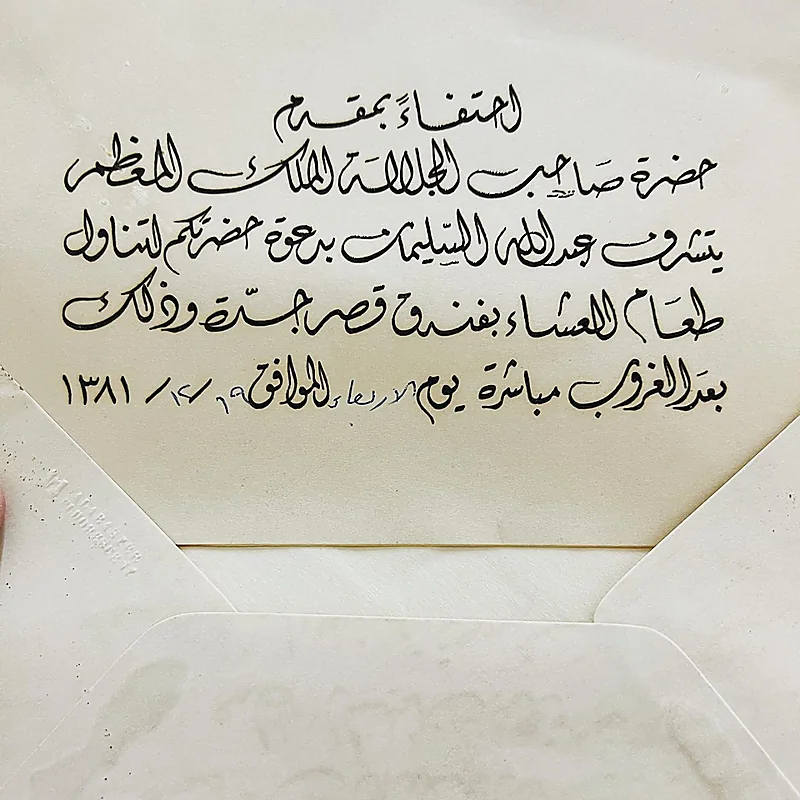 احتفاءً بمقدم
حضرة صاحب الجلالة الملك المعظم
يتشرف عبدالله السليمان بدعوة حضرتكم لتناول
طعام العشاء بفندق قصر جدّة وذلك
بعد الغروب مباشرة يوم الاربعاء الموافق ١٩/١٢/١٣٨١